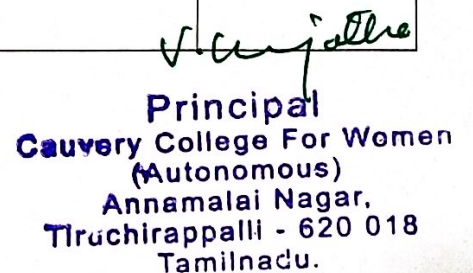 V. Sujatha
Principal
Cauvery College For Women
(Autonomous)
Annamalai Nagar,
Tiruchirappalli - 620 018
Tamilnadu.